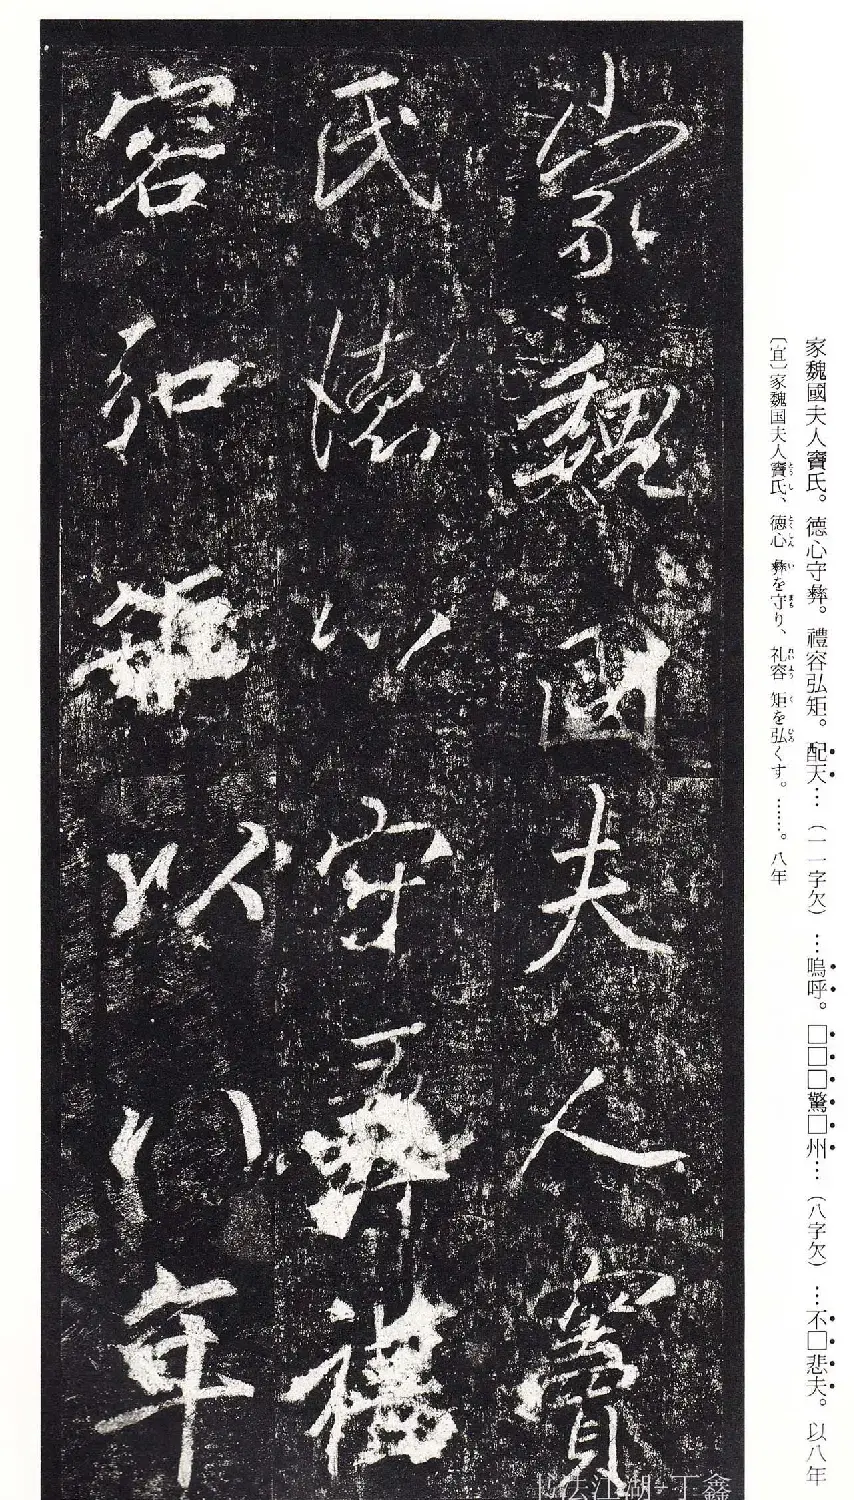 家魏國夫人竇氏。德心守彝。禮容弘矩。配天…（一一字欠）…嗚呼。□□□驚□州…（八字欠）…不□悲夫。以八年
〔宜〕家魏国夫人竇氏、德心 彝を守り、礼容 矩を弘くす。……。八年
家魏國夫人竇
氏德心守彝禮
容弘矩以八年
书法江湖-丁鑫